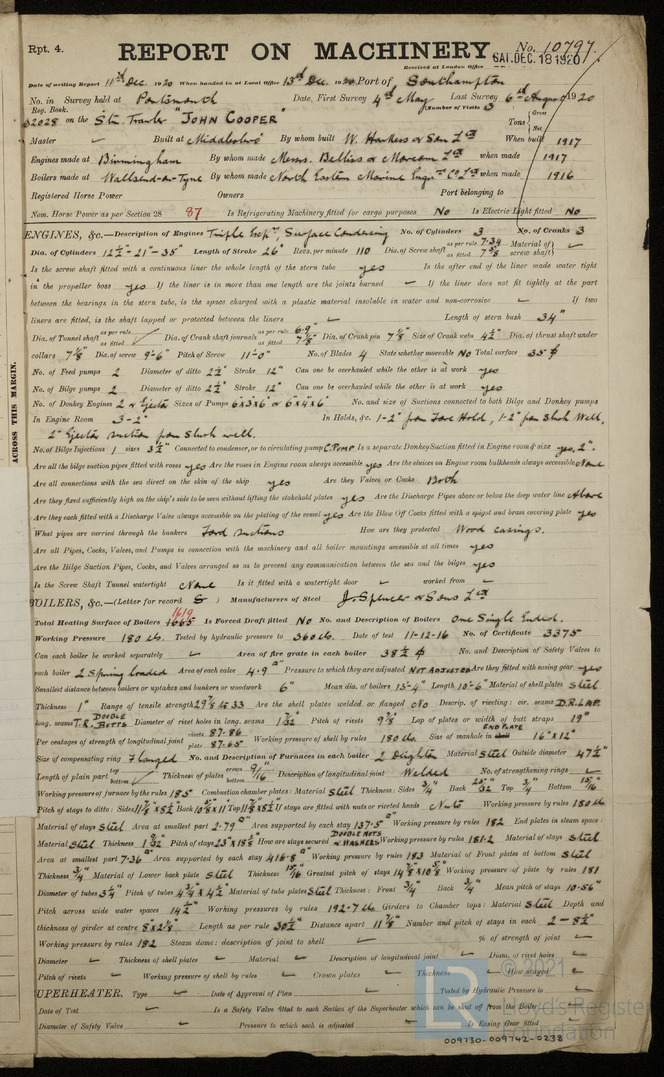 Rpt. 4.
REPORT ON MACHINERY
No. 10797
SAT. DEC. 18 1920
Received at London Office
Date of writing Report 11th Dec. 1920 When handed in at Local Office 13th Dec. 1920 Port of Southampton
No. in Survey held at Portsmouth Date, First Survey 4th May Last Survey 6th August 1920
Reg. Book. Number of Visits 3
62028 on the Str. Trawler "JOHN COOPER" Tons Gross Net
Master Built at Middlesbro' By whom built W. Harkess & Son Ltd When built 1917
Engines made at Birmingham By whom made Messrs. Belliss & Morcom Ltd when made 1917
Boilers made at Wallsend-on-Tyne By whom made North Eastern Marine Engrg Co Ltd when made 1916
Registered Horse Power Owners Port belonging to
Nom. Horse Power as per Section 28 87 Is Refrigerating Machinery fitted for cargo purposes No Is Electric Light fitted No
ENGINES, &c.—Description of Engines Triple Expn, Surface Condensing No. of Cylinders 3 No. of Cranks 3
Dia. of Cylinders 12½"-21"-35" Length of Stroke 26" Revs. per minute 110 Dia. of Screw shaft as per rule 7.34 as fitted 7⅝ Material of screw shaft
Is the screw shaft fitted with a continuous liner the whole length of the stern tube yes Is the after end of the liner made water tight
in the propeller boss yes If the liner is in more than one length are the joints burned If the liner does not fit tightly at the part
between the bearings in the stern tube, is the space charged with a plastic material insoluble in water and non-corrosive If two
liners are fitted, is the shaft lapped or protected between the liners Length of stern bush 34"
Dia. of Tunnel shaft as per rule as fitted Dia. of Crank shaft journals as per rule 6.9 as fitted 7⅛ Dia. of Crank pin 7⅛ Size of Crank webs 4½ Dia. of thrust shaft under
collars 7⅛ Dia. of screw 9'-6" Pitch of Screw 11'-0" No. of Blades 4 State whether moveable No Total surface 35
No. of Feed pumps 2 Diameter of ditto 2½ Stroke 12" Can one be overhauled while the other is at work yes
No. of Bilge pumps 2 Diameter of ditto 2½ Stroke 12" Can one be overhauled while the other is at work yes
No. of Donkey Engines 2 & Ejector Sizes of Pumps 6x3x6 & 6x4x6 No. and size of Suctions connected to both Bilge and Donkey pumps
In Engine Room 3-2" In Holds, &c. 1-2" from Fore Hold, 1-2" from Slush Well,
2" Ejector suction from Slush well.
No. of Bilge Injections 1 sizes 3½ Connected to condenser, or to circulating pump C. Pump Is a separate Donkey Suction fitted in Engine room & size yes, 2".
Are all the bilge suction pipes fitted with roses yes Are the roses in Engine room always accessible yes Are the sluices on Engine room bulkheads always accessible None
Are all connections with the sea direct on the skin of the ship yes Are they Valves or Cocks Both
Are they fixed sufficiently high on the ship's side to be seen without lifting the stokehold plates yes Are the Discharge Pipes above or below the deep water line Above
Are they each fitted with a Discharge Valve always accessible on the plating of the vessel yes Are the Blow Off Cocks fitted with a spigot and brass covering plate yes
What pipes are carried through the bunkers Ford suctions How are they protected Wood casings.
Are all Pipes, Cocks, Valves, and Pumps in connection with the machinery and all boiler mountings accessible at all times yes
Are the Bilge Suction Pipes, Cocks, and Valves arranged so as to prevent any communication between the sea and the bilges yes
Is the Screw Shaft Tunnel watertight None Is it fitted with a watertight door worked from
BOILERS, &c.—(Letter for record S) Manufacturers of Steel J. Spencer & Sons Ltd
Total Heating Surface of Boilers 1619 Is Forced Draft fitted No No. and Description of Boilers One Single Ended.
Working Pressure 180 lb. Tested by hydraulic pressure to 360 lb. Date of test 11-12-16 No. of Certificate 3375
Can each boiler be worked separately Area of fire grate in each boiler 38½ No. and Description of Safety Valves to
each boiler 2 Spring loaded Area of each valve 4.9 Pressure to which they are adjusted NOT ADJUSTED Are they fitted with easing gear yes
Smallest distance between boilers or uptakes and bunkers or woodwork 6" Mean dia. of boilers 13'-4" Length 10'-6" Material of shell plates Steel
Thickness 1" Range of tensile strength 29½ to 33 Are the shell plates welded or flanged No Descrip. of riveting: cir. seams D.R. LAP.
long. seams T.R. DOUBLE BUTTS Diameter of rivet holes in long. seams 1 1/32 Pitch of rivets 9⅞ Lap of plates or width of butt straps 19"
Per centages of strength of longitudinal joint rivets 87.86 plate 87.65 Working pressure of shell by rules 180 lb. Size of manhole in END PLATE 16"x12"
Size of compensating ring Flanged No. and Description of Furnaces in each boiler 2 Deighton Material Steel Outside diameter 47½
Length of plain part top bottom Thickness of plates crown bottom 9/16 Description of longitudinal joint Welded No. of strengthening rings
Working pressure of furnace by the rules 185 Combustion chamber plates: Material Steel Thickness: Sides ¾ Back 25/32 Top ¾ Bottom 15/16
Pitch of stays to ditto: Sides 11⅞x8½ Back 10⅝x11 Top 11⅞x8½ If stays are fitted with nuts or riveted heads Nuts Working pressure by rules 180 lb.
Material of stays Steel Area at smallest part 2.79 Area supported by each stay 137.5 Working pressure by rules 182 End plates in steam space:
Material Steel Thickness 1 1/32 Pitch of stays 23"x18⅛ How are stays secured DOUBLE NUTS & WASHERS Working pressure by rules 181.2 Material of stays Steel
Area at smallest part 7.36 Area supported by each stay 416.8 Working pressure by rules 183 Material of Front plates at bottom Steel
Thickness ¾ Material of Lower back plate Steel Thickness 15/16 Greatest pitch of stays 14⅞x10⅝ Working pressure of plate by rules 181
Diameter of tubes 3¼ Pitch of tubes 4¾x4½ Material of tube plates Steel Thickness: Front ¾ Back ¾ Mean pitch of stays 10.56"
Pitch across wide water spaces 14½ Working pressures by rules 192.7 lb Girders to Chamber tops: Material Steel Depth and
thickness of girder at centre 8x2⅛ Length as per rule 30½ Distance apart 11⅞ Number and pitch of stays in each 2-8½
Working pressure by rules 182 Steam dome: description of joint to shell % of strength of joint
Diameter Thickness of shell plates Material Description of longitudinal joint Diam. of rivet holes
Pitch of rivets Working pressure of shell by rules Crown plates Thickness How stayed
SUPERHEATER. Type Date of Approval of Plan Tested by Hydraulic Pressure to
Date of Test Is a Safety Valve fitted to each Section of the Superheater which can be shut off from the Boiler
Diameter of Safety Valve Pressure to which each is adjusted Is Easing Gear fitted
ACROSS THIS MARGIN.
© 2021
LR
Lloyd's Register
Foundation
009730-009742-0238